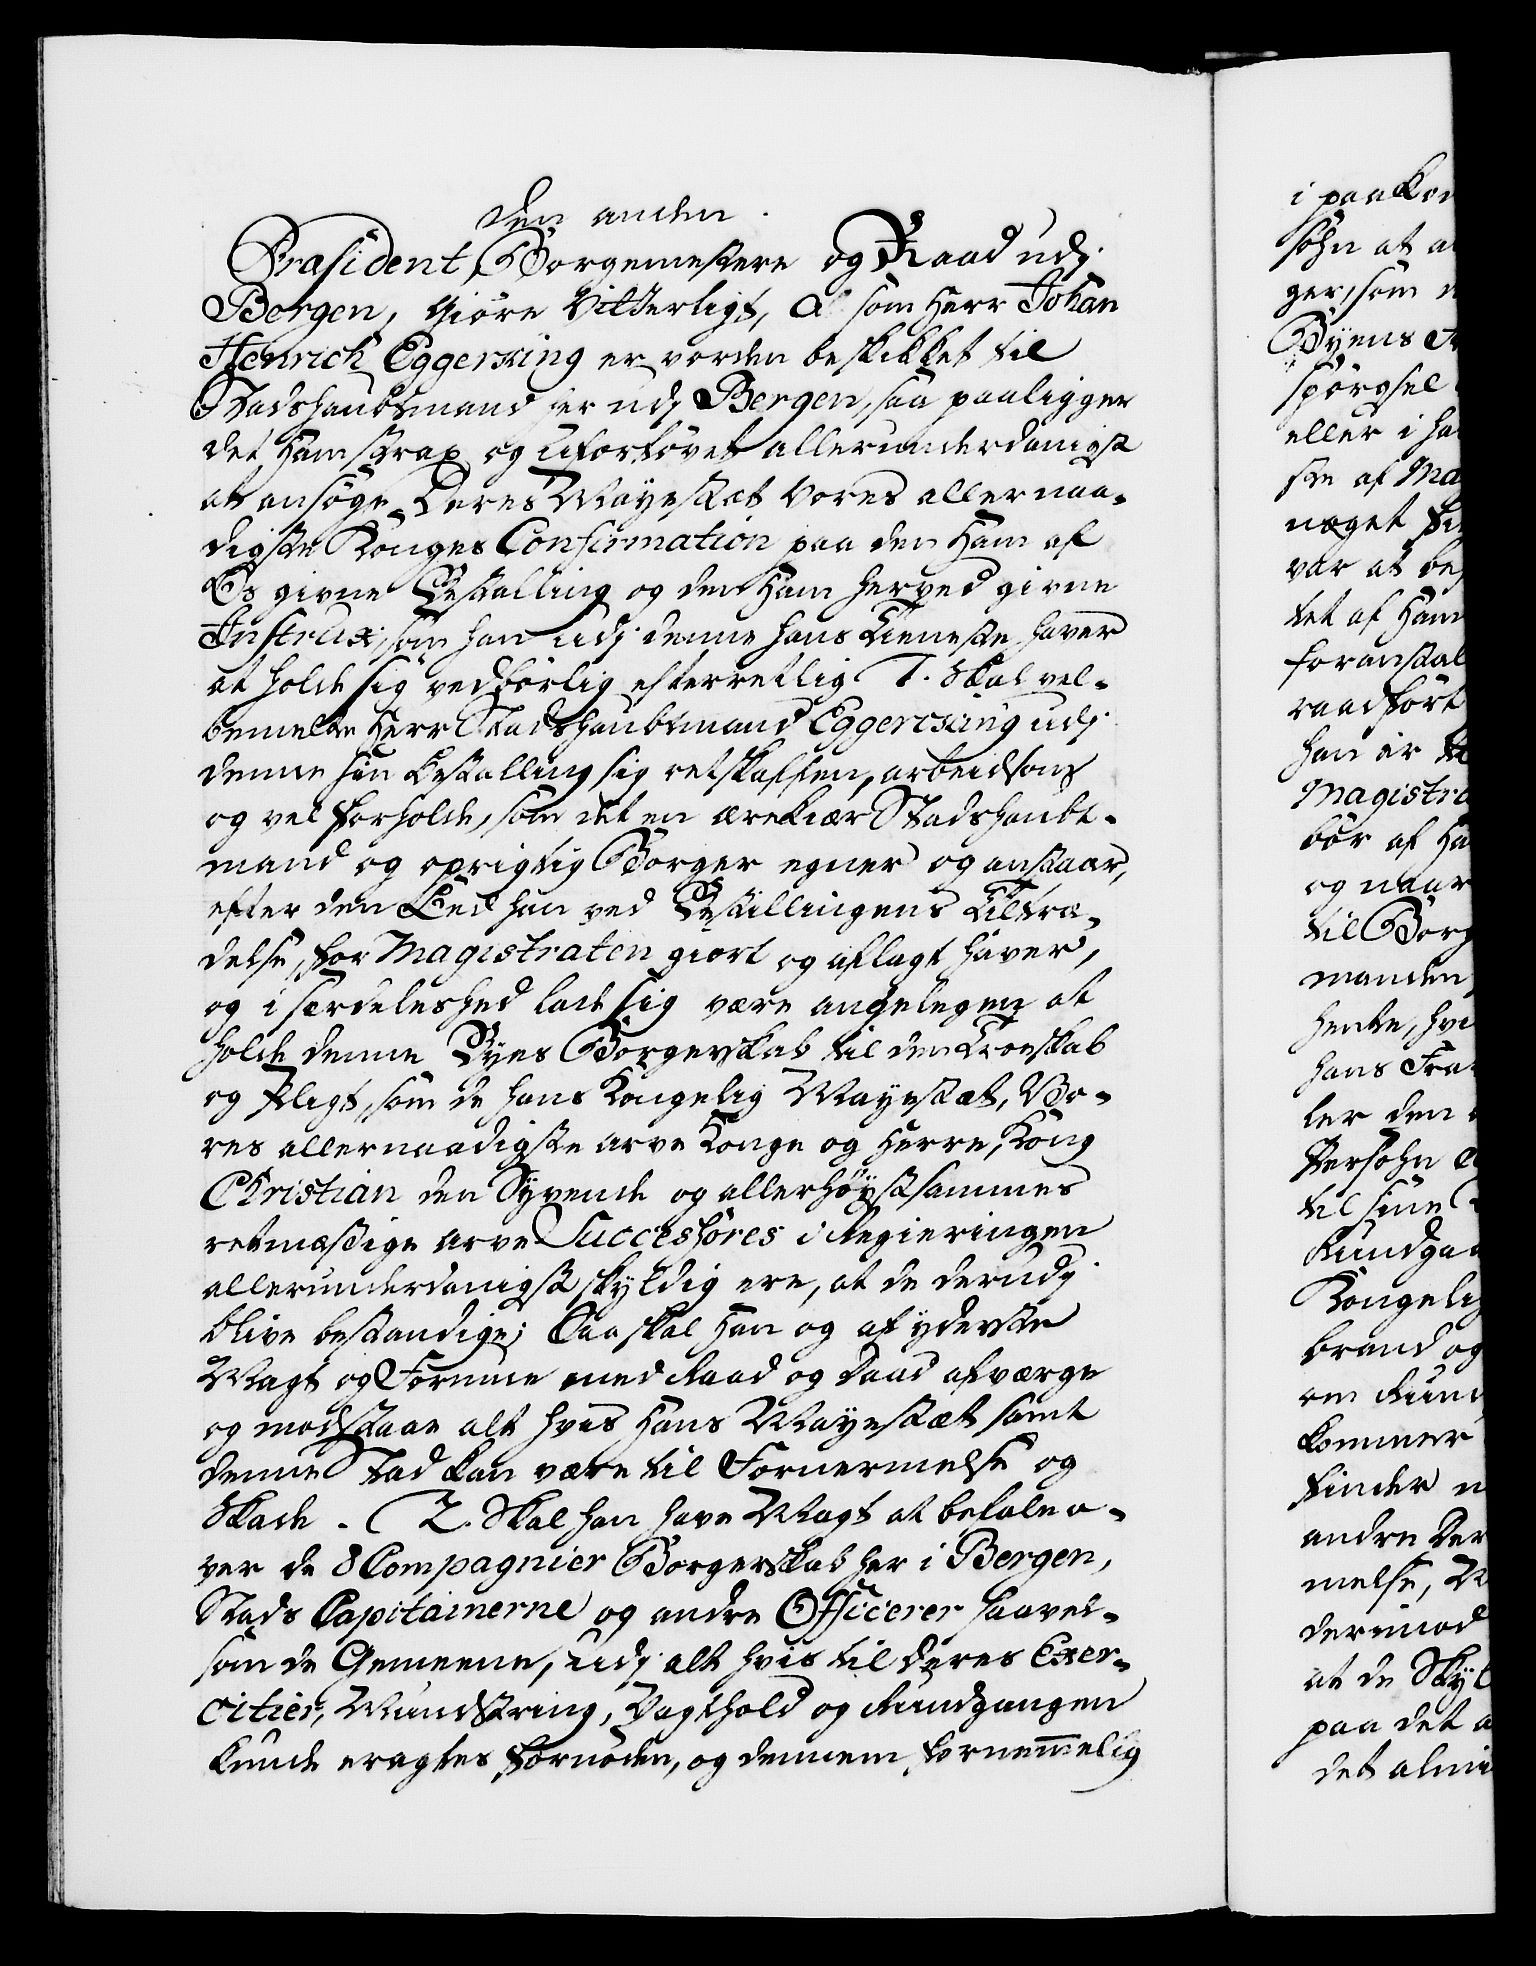 den anden.
Præsident, Borgemestere og Raad udj
Bergen, Giöre Vitterligt, at som Herr Johan
Henrich Eggerking er vorden beskikket til
Stadshaubtmand her udj Bergen, saa paaligger
det Ham strax og Ufortövet allerunderdanigst
at ansöge Deres Mayestæt Vores allernaa-
digste Konges Confirmation paa den Ham af
Os givne Bestalling og den Ham herved givne
Instrux, som han udj denne hans Tieneste haver
at holde sig vedbörlig efterretlig 1. Skal vel-
bemelte Herr Stadshaubtmand Eggerking udj
denne hun Bestalling sig retskaffen, arbeidsom
og vel forholde, som det en ærekiær Stadshaubt-
mand og oprigtig Borger egner og anstaar,
efter den Eed han ved Bestillingens Tiltræ-
delse, for Magistraten giort og aflagt haver,
og i særdeleshed lade sig være angelegen at
holde denne Byes Borgerskab til den Troeskab
og Pligt, som de hans Kongelig Mayestæt, Vo-
res allernaadigste arve Konge og Herre, Kong
Christian den Syvende og allerhöystsammes
retmæssige arve Successores i Regieringen
allerunderdanigst skyldig ere, at de derudj
blive bestandige; Saa skal Han og af yderste
Magt og Formue med Raad og Daad afværge
og modstaae alt hvis Hans Mayestæt samt
denne Stad kan være til Fornermelse og
Skade. 2. Skal han have Magt at befale o-
ver de 8 Compagnier Borgerskab her i Bergen,
Stads Capitainerne og andre Officerer saavel-
som de Gemeene, udj alt hvis til deres Exer-
citier, Mundstring, Vagthold og Rundgangen
kunde eragtes fornöden, og dennem fornemmelig
i paakom
sohn at a
ger, som
Byens
spörgsel
eller i ha
ste af Ma
noget
var at be
tet af Ham
foranstal
raadfört
han er
Magistra
bör af Ha
og naar
til Borg
manden,
hente, hvi
hans Fra
ler den
Persohn
til sine
Kundga
Kongelig
brand og
om Rund
kommer
finder
andre Der
melse, M
derimod
at de Sky
paa det a
det almi